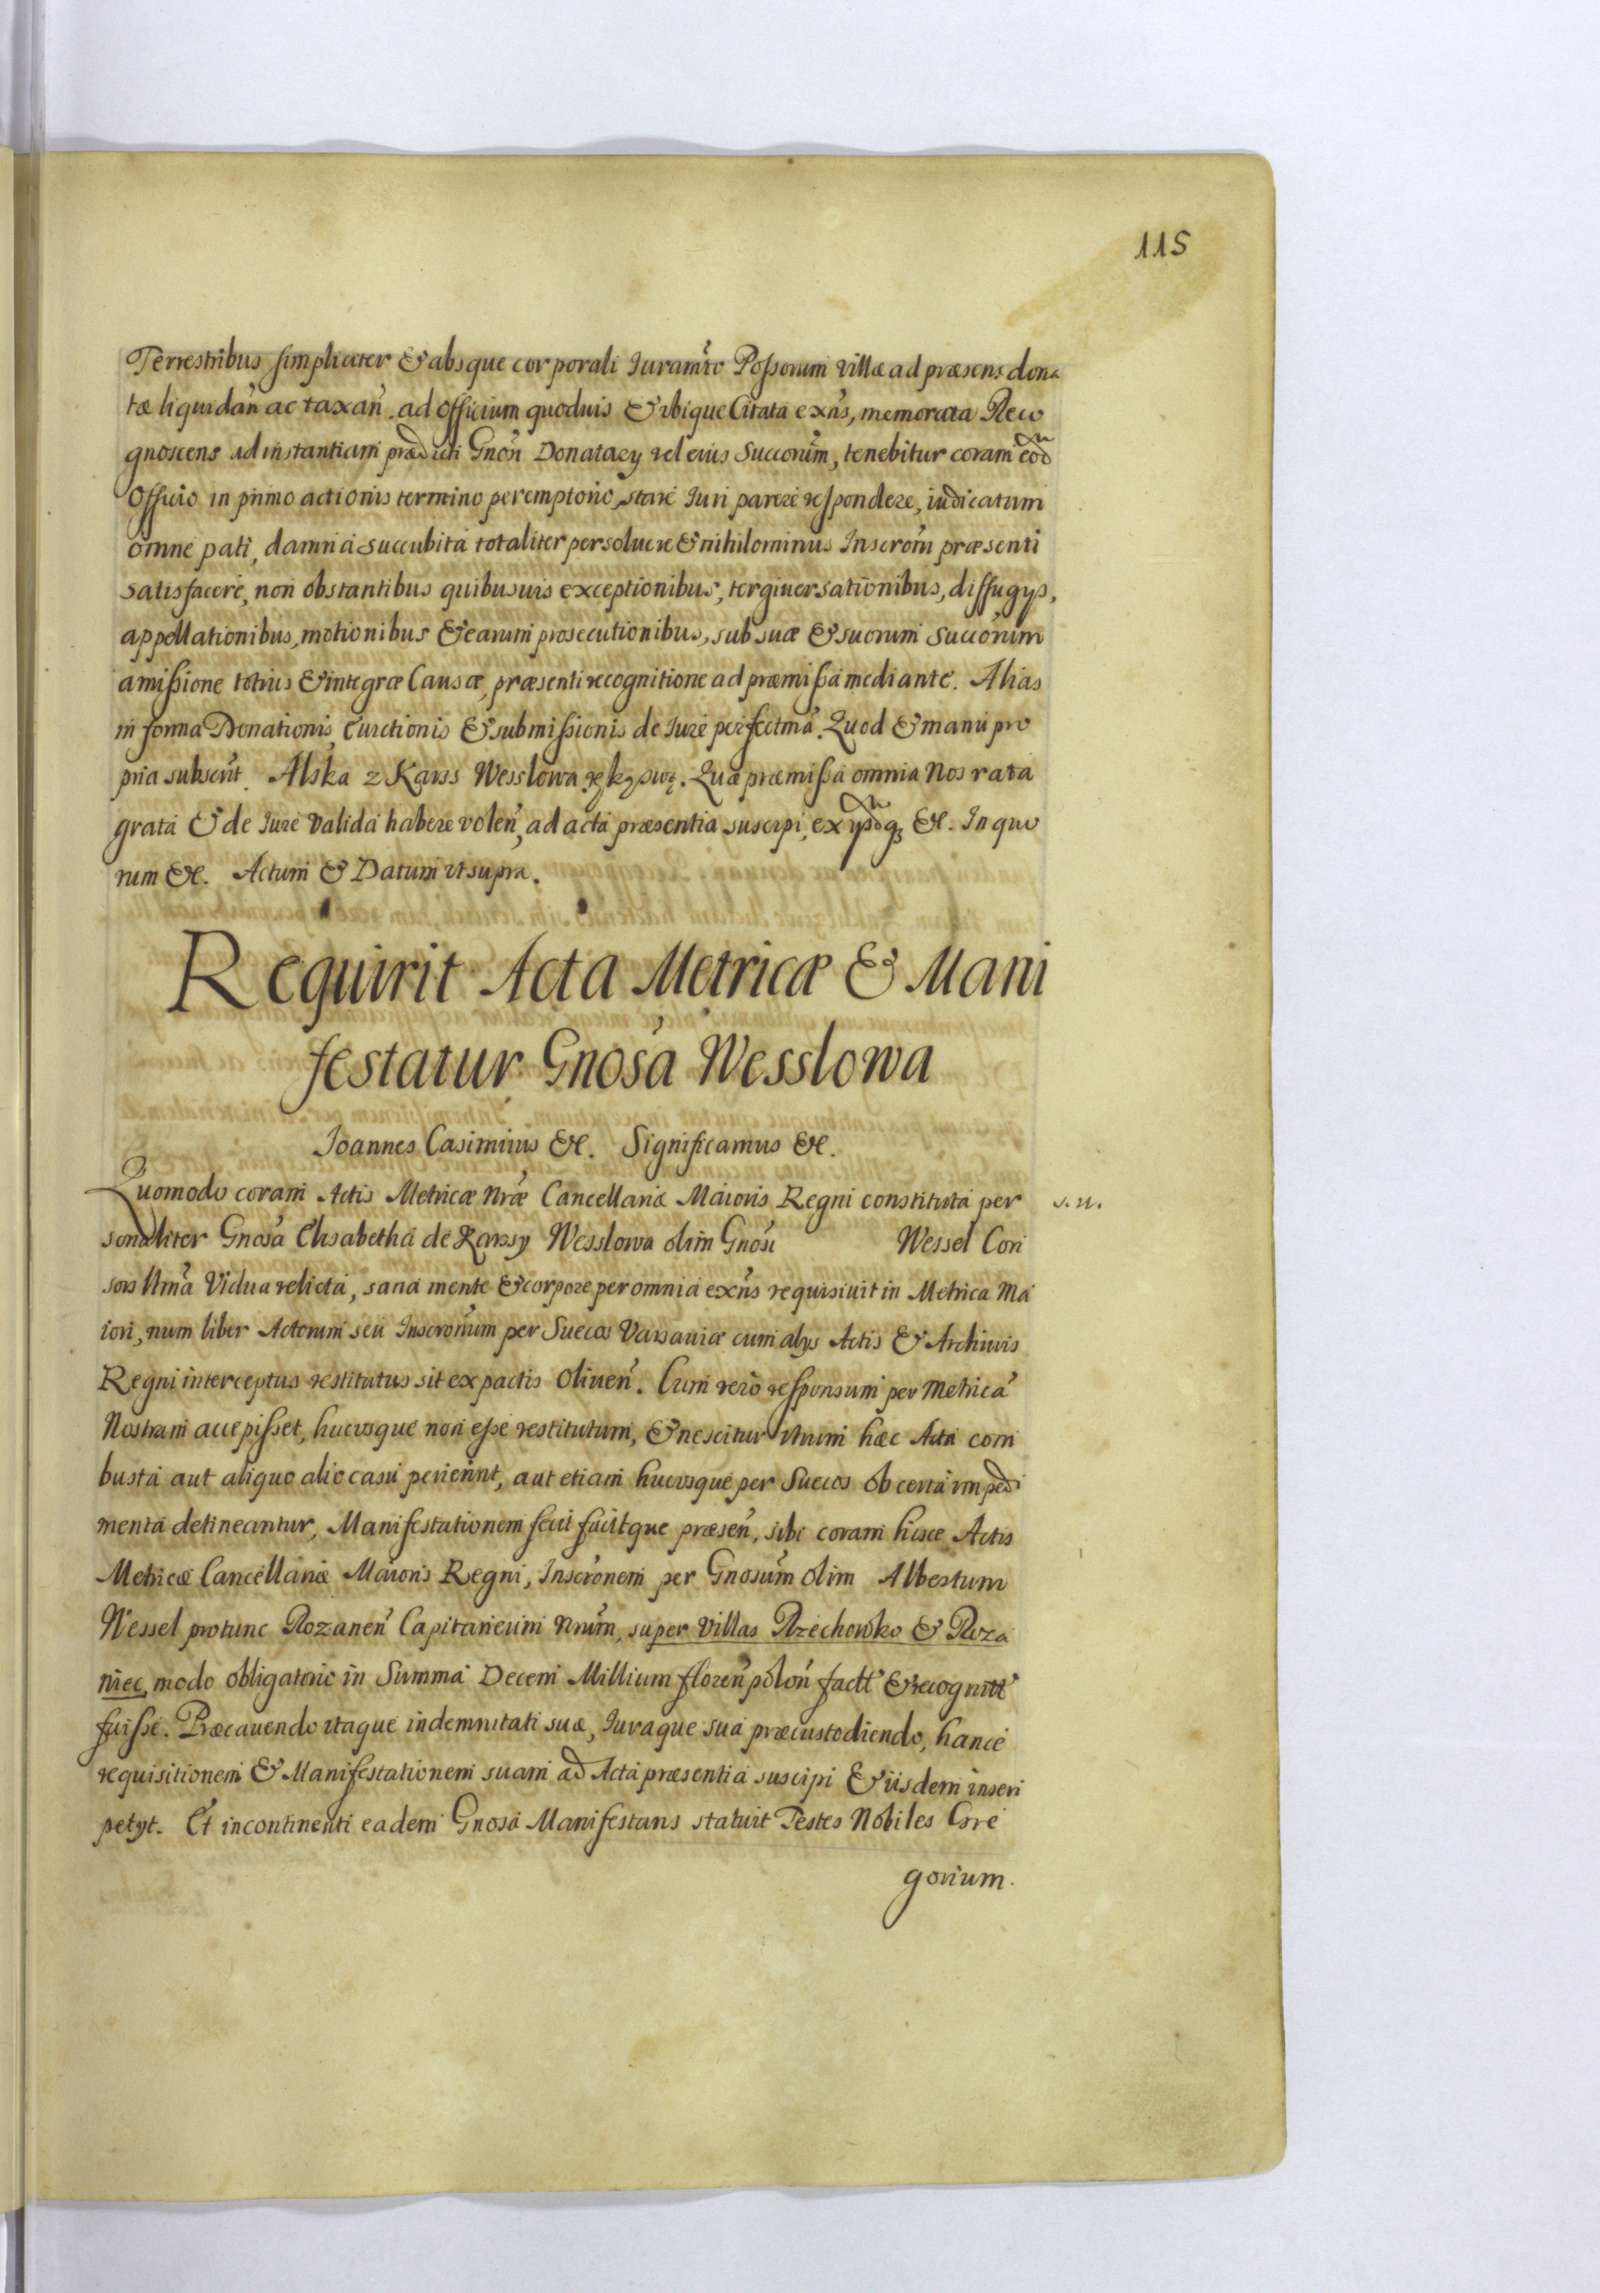 115
Terrestribus simpliciter & absque corporali Iuramto Possorum villæ ad præsens dona
tæ liquidan ac taxan. ad Officium quoduis & vbique Citata exns, memorata Reco
gnoscens ad instantiam prædicti Gnosi Donatary vel eius Succorum, tenebitur coram eod
Officio in primo actionis termino peremptorie stare Iuri parere respondere, iudicatum
omne pati, damna succubita totaliter persoluere & nihilominus Inscrom præsenti
satisfacere, non obstantibus quibusuis exceptionibus, tergiuersationibus, diffugys,
appellationibus, motionibus & earum prosecutionibus, sub suæ & suorum Succorum
amissione totius & integræ Causæ, præsenti recognitione ad præmissa mediante. Alias
in forma Donationis Euictionis & submissionis de Iure perfectma. Quod & manu pro
pria subscrit. Alska z Karss Wesslowa ręką swą. Quæ præmissa omnia Nos rata
grata & de Iure valida habere volen, ad acta præsentia suscepi, ex ysdq; &c. In quo
rum &c. Actum & Datum vt supra.
Requirit Acta Metricæ & Mani
festatur Gnosa Wesslowa
Joannes Casimirus &c. Significamus &c.
Quomodo coram Actis Metricæ Nræ Cancellariæ Maioris Regni constituta per s.n.
sonaliter Gnosa Elisabetha de Karsy Wesslowa olim Gnosi Wessel Con
sors Ulma Vidua relicta, sana mente & corpore per omnia exns requisiuit in Metrica Ma
iori, num liber Actorum seu Inscronum per Suecos Varsauiæ cum alys Actis & Archiuis
Regni interceptus restitutus sit ex pactis Oliuen. Cum vero responsum per Metrica
Nostram accepisset, hucvsque non esse restitutum, & nescitur vtrum hæc Acta com
busta aut aliquo alio casu perierint, aut etiam hucvsque per Suecos ob certa impedi
menta detineantur, Manifestationem fecit facitque præsen, sibi coram hisce Actis
Metricæ Cancellariæ Maioris Regni, Inscronem per Gnosum olim Albertum
Wessel protunc Rozanen Capitaneum Nrum, super Villas Rzechowko & Roza
niec, modo obligatorio in Summa Decem Millium floren polon factt & recognitt
fuisse. Præcauendo itaque indemnitati suæ, Iuraque sua præcustodiendo, hance
requisitionem & Manifestationem suam ad Acta præsentia suscipi & iisdem inseri
petyt. Et incontinenti eadem Gnosa Manifestans statuit Testes Nobiles Gre
gorium.